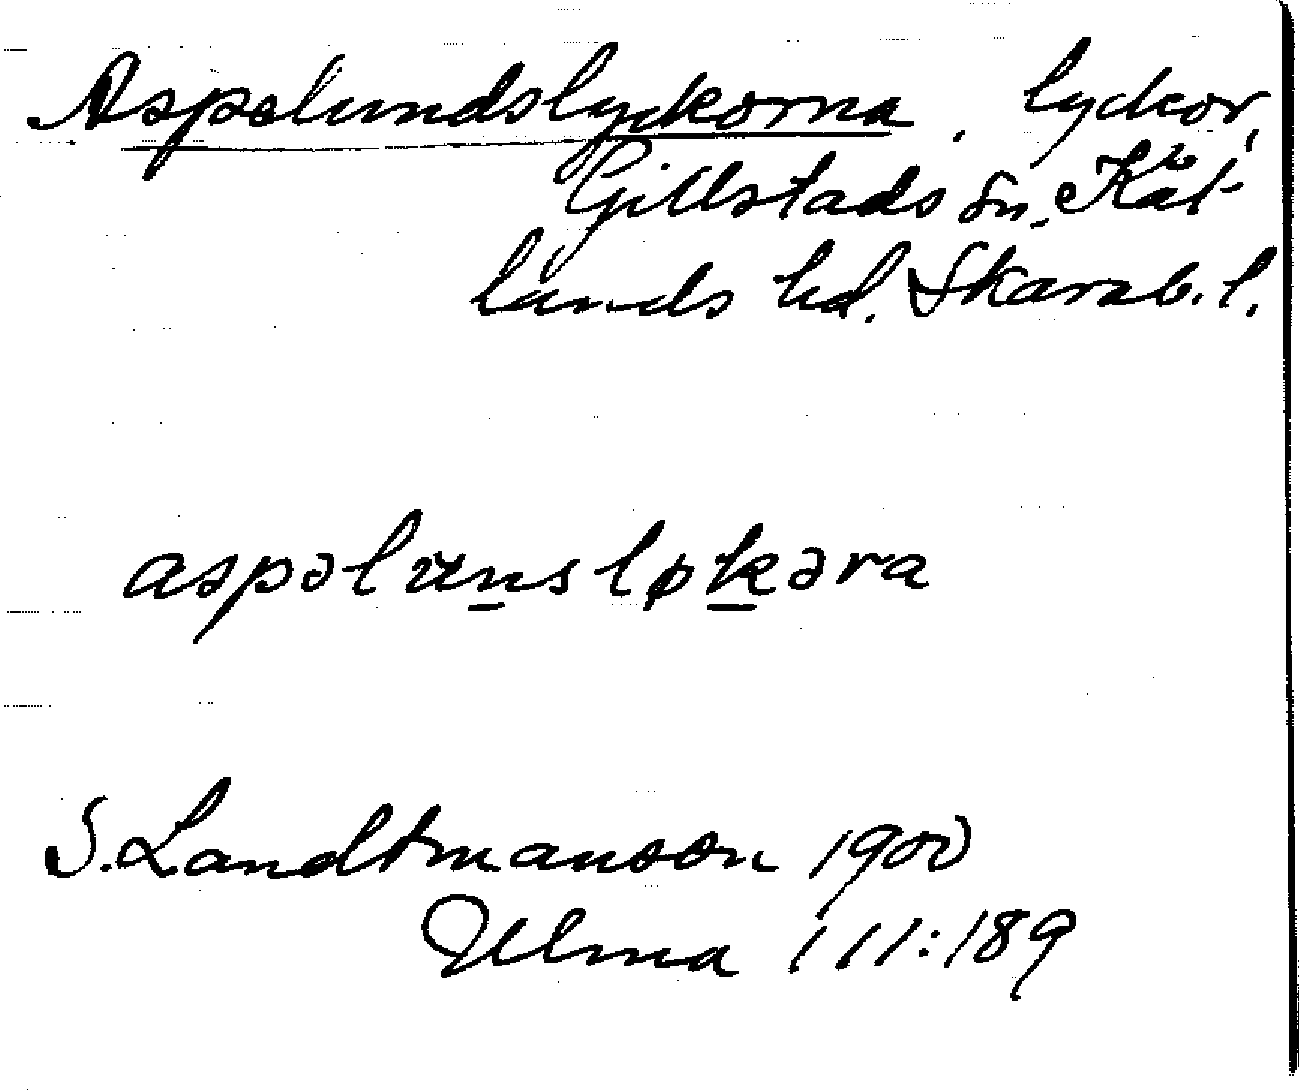 Aspelundslyckorna, lyckor,
Gillstads sn, Kål-
lands hd. Skarab. l.
aspəlunsløkəra
S. Landtmanson 1900
Ulma 111:189